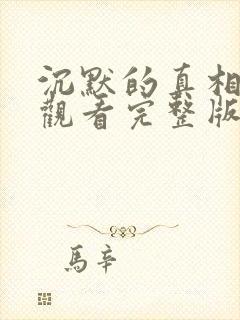 沉默的真相
觀看完整版
馬辛